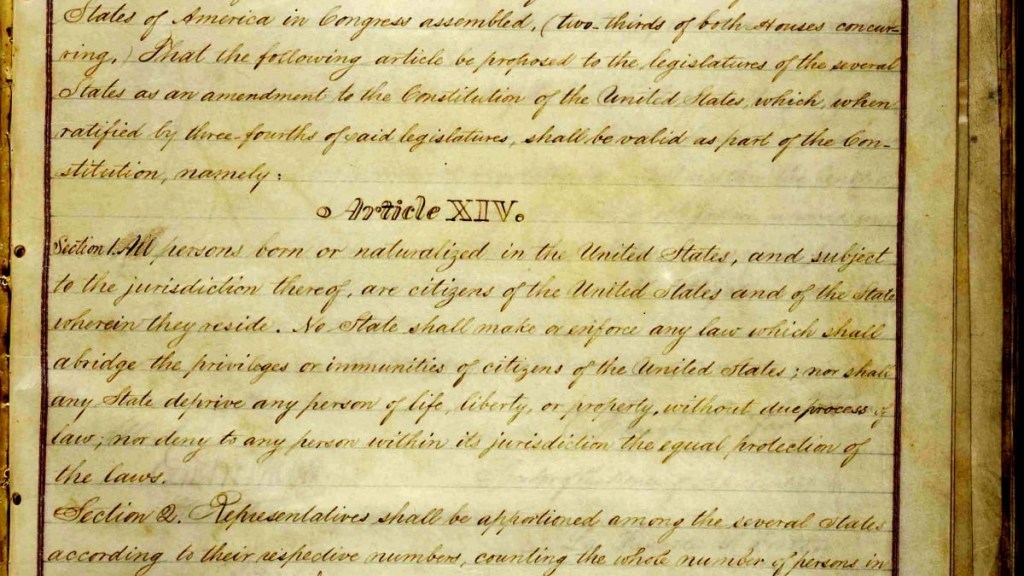 States of America in Congress assembled, (two-thirds of both Houses concur-
ring,) That the following article be proposed to the legislatures of the several
States as an amendment to the Constitution of the United States, which, when
ratified by three-fourths of said legislatures, shall be valid as part of the Con-
stitution, namely:
Article XIV.
Section 1. All persons born or naturalized in the United States, and subject
to the jurisdiction thereof, are citizens of the United States and of the State
wherein they reside. No State shall make or enforce any law which shall
abridge the privileges or immunities of citizens of the United States; nor shall
any State deprive any person of life, liberty, or property, without due process of
law; nor deny to any person within its jurisdiction the equal protection of
the laws.
Section 2. Representatives shall be apportioned among the several States
according to their respective numbers, counting the whole number of persons in